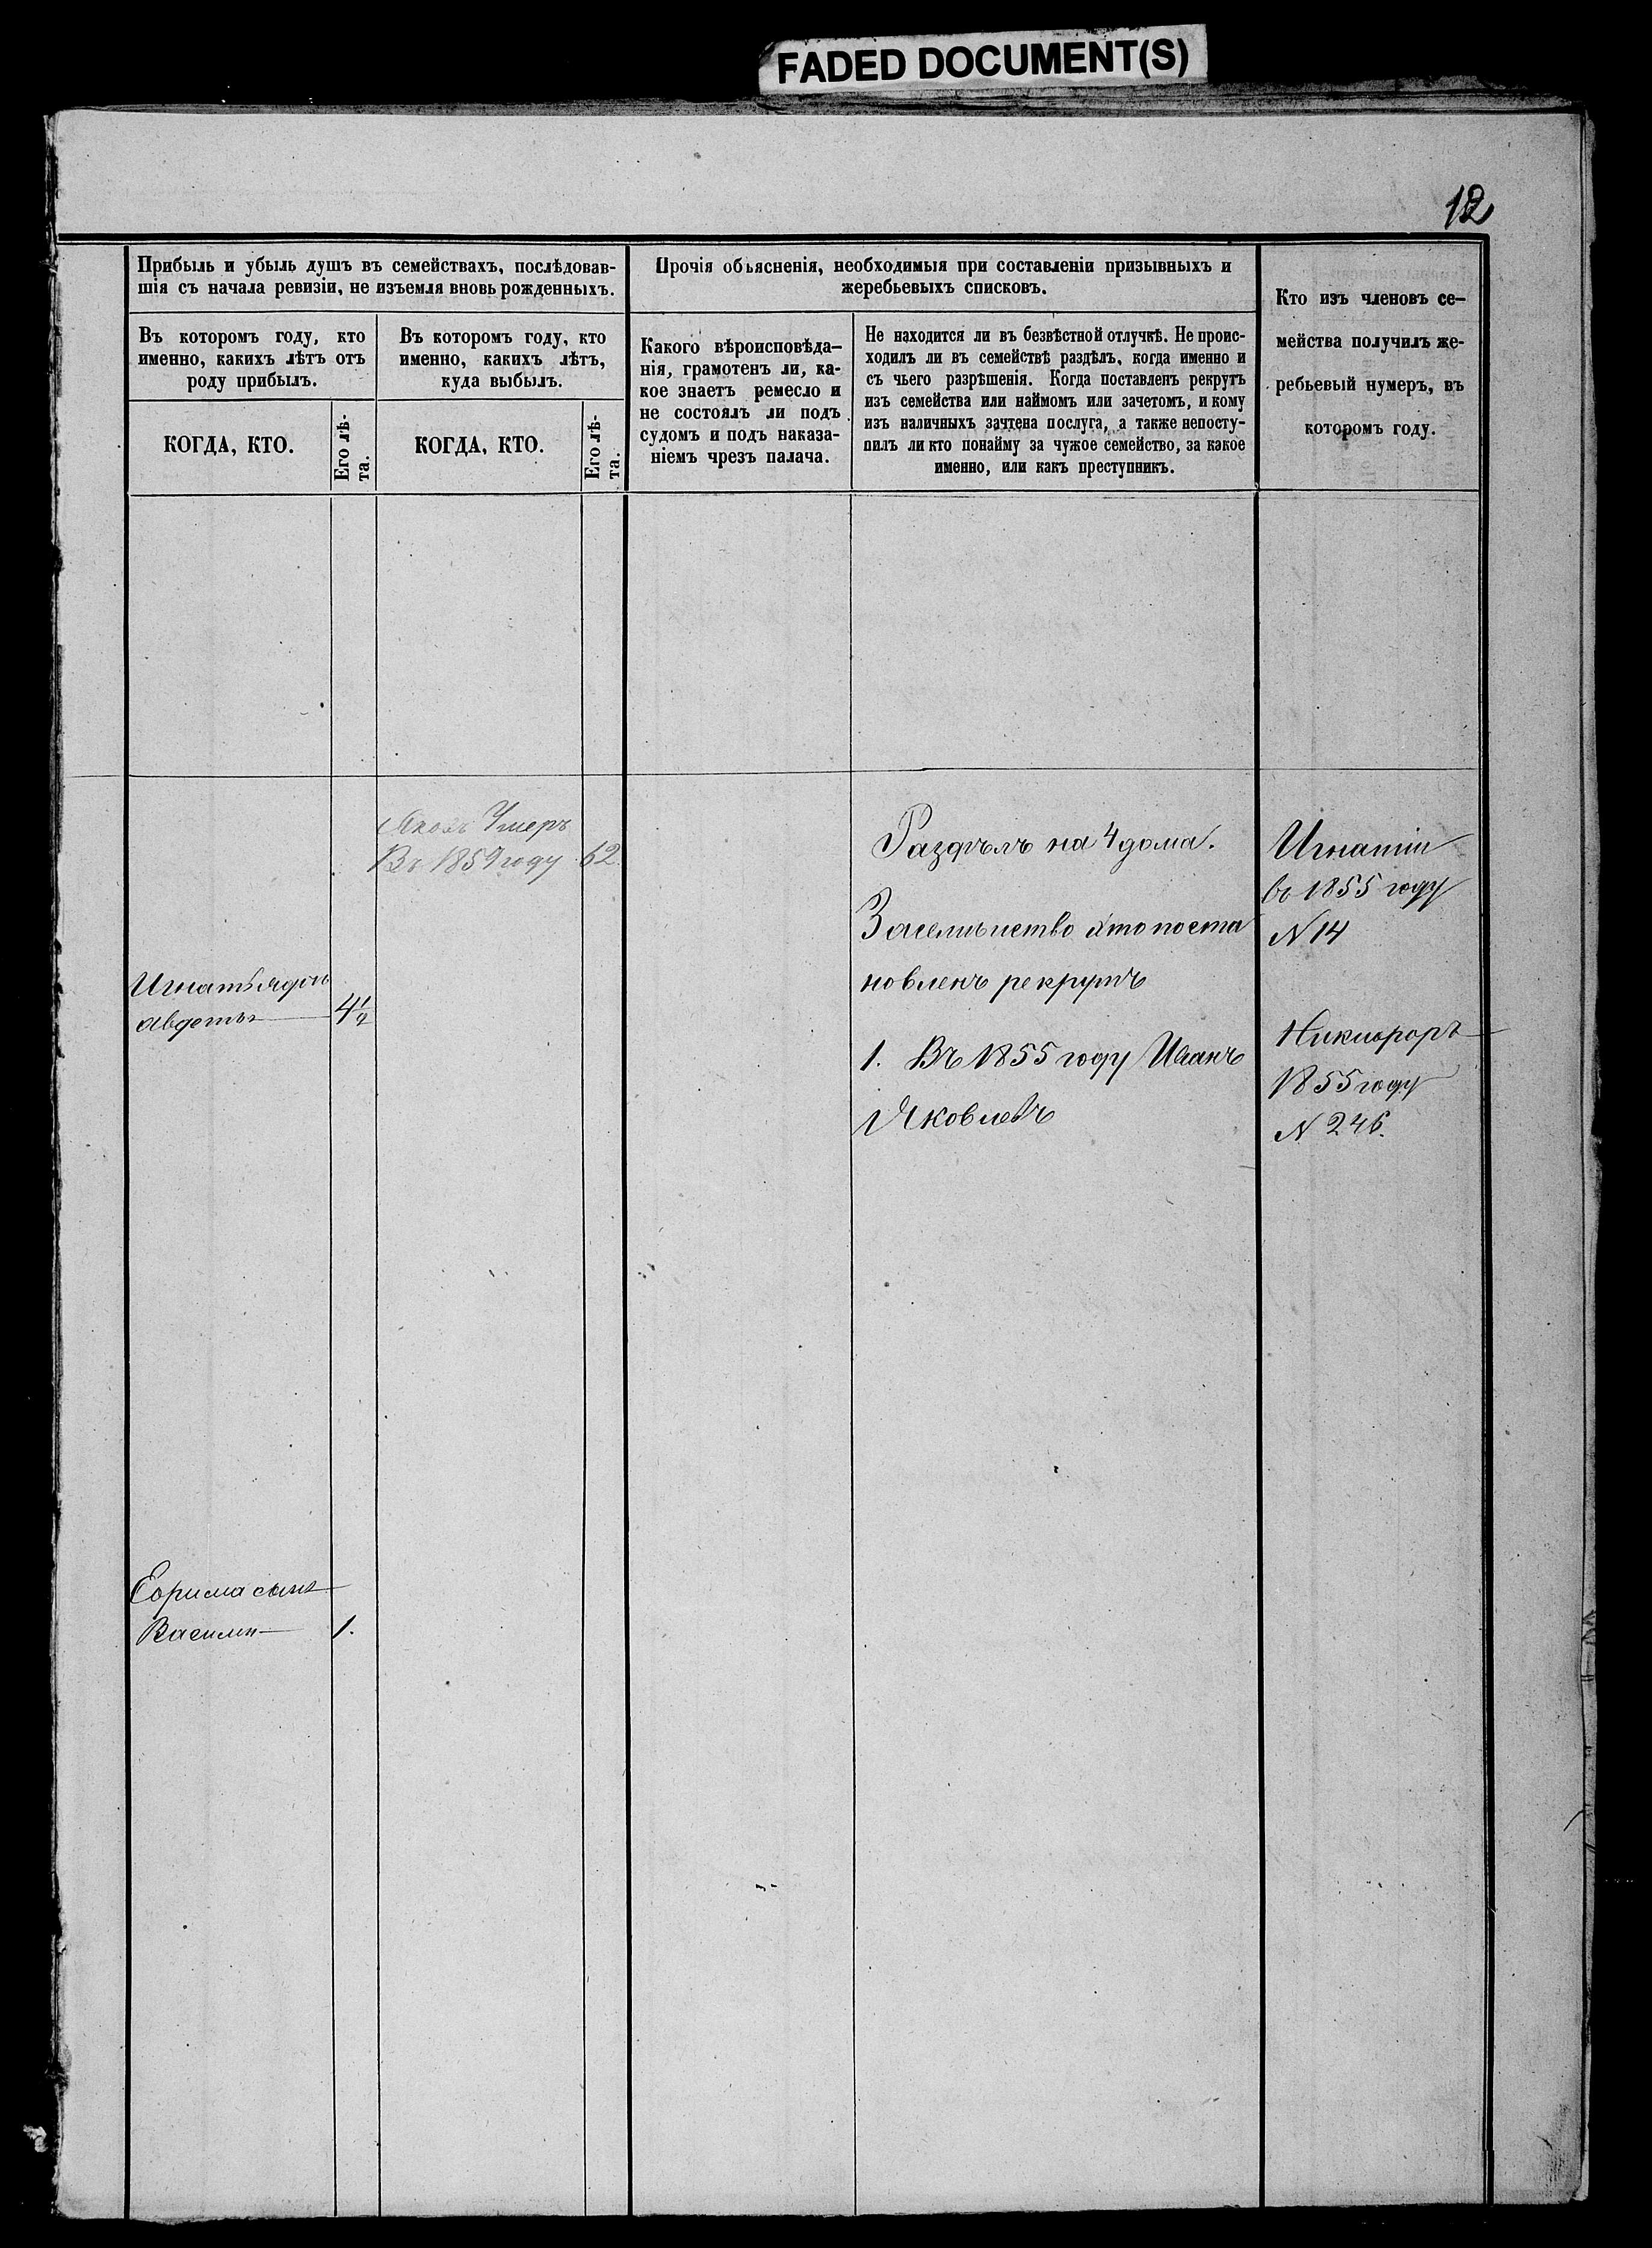 FADED DOCUMENT(S)
12
Прибыль и убыль душъ въ семействахъ, послѣдовав-
шія съ начала ревизіи, не изъемля вновь рожденныхъ.
Въ которомъ году, кто
именно, какихъ лѣтъ отъ
роду прибылъ.
КОГДА, КТО.
Его лѣ-
та.
Въ которомъ году, кто
именно, какихъ лѣтъ,
куда выбылъ.
КОГДА, КТО.
Его лѣ-
та.
Прочія объясненія, необходимыя при составленіи призывныхъ и
жеребьевыхъ списковъ.
Какого вѣроисповѣда-
нія, грамотенъ ли, ка-
кое знаетъ ремесло и
не состоялъ ли подъ
судомъ и подъ наказа-
ніемъ чрезъ палача.
Не находится ли въ безвѣстной отлучкѣ. Не проис-
ходилъ ли въ семействѣ раздѣлъ, когда именно и
съ чьего разрѣшенія. Когда поставленъ рекрутъ
изъ семейства или наймомъ или зачетомъ, и кому
изъ наличныхъ зачтена послуга, а также непосту-
пилъ ли кто понайму за чужое семейство, за какое
именно, или какъ преступникъ.
Кто изъ членовъ се-
мейства получилъ же-
ребьевый нумеръ, въ
которомъ году.
Яковъ Умеръ
Въ 1859 году 62.
Раздѣлъ на 4 дома.
Засемѣиство кто поста
новленъ рекрутъ
1. Въ 1855 году Иванъ
Яковлевъ
Игнатіи
въ 1855 году
N 14
Никифоръ
1855 году
N 246.
4 1/2
Ефрима сынъ
Василіи 1.